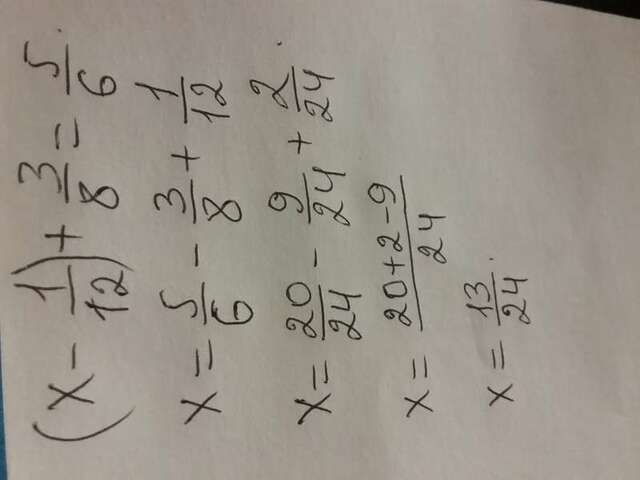 (x - 1/12) + 3/8 = 5/6.
x = 5/6 - 3/8 + 1/12
x = 20/24 - 9/24 + 2/24.
x = 20+2-9/24
x = 13/24.